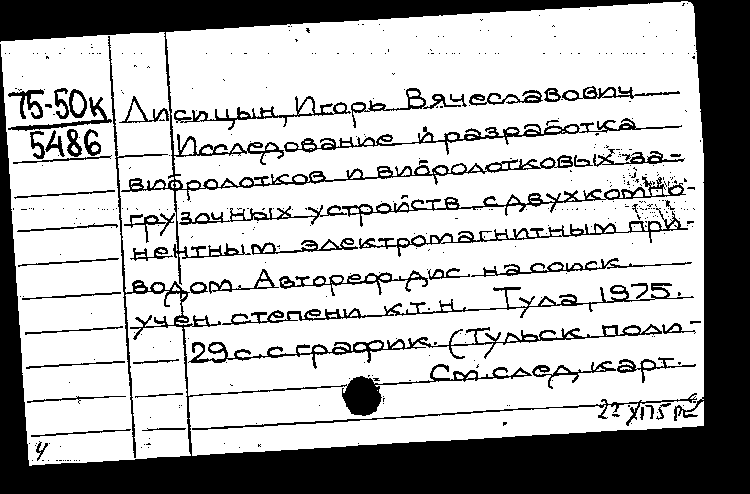 75-50к
5486
Лисицын, Игорь Вячеславович
Исследование и разработка
вибролотков и вибролотковых за-
грузочных устройств с двухкомпо-
нентным электромагнитным при-
водом. Автореф. дис. на соиск.
учен. степени к.т.н. Тула, 1975.
29 с. с график. (Тульск. поли-
См. след. карт.
22 XII 75
4